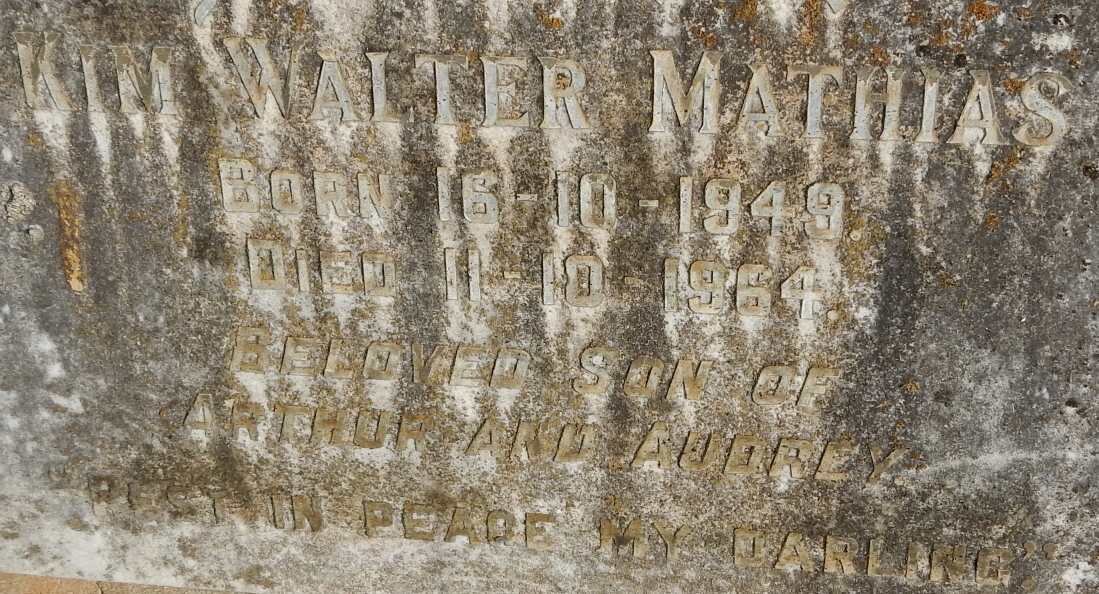 KIM WALTER MATHIAS
BORN 16-10-1949
DIED 11-10-1964.
BELOVED SON OF
ARTHUR AND AUDREY.
"REST IN PEACE MY DARLING."